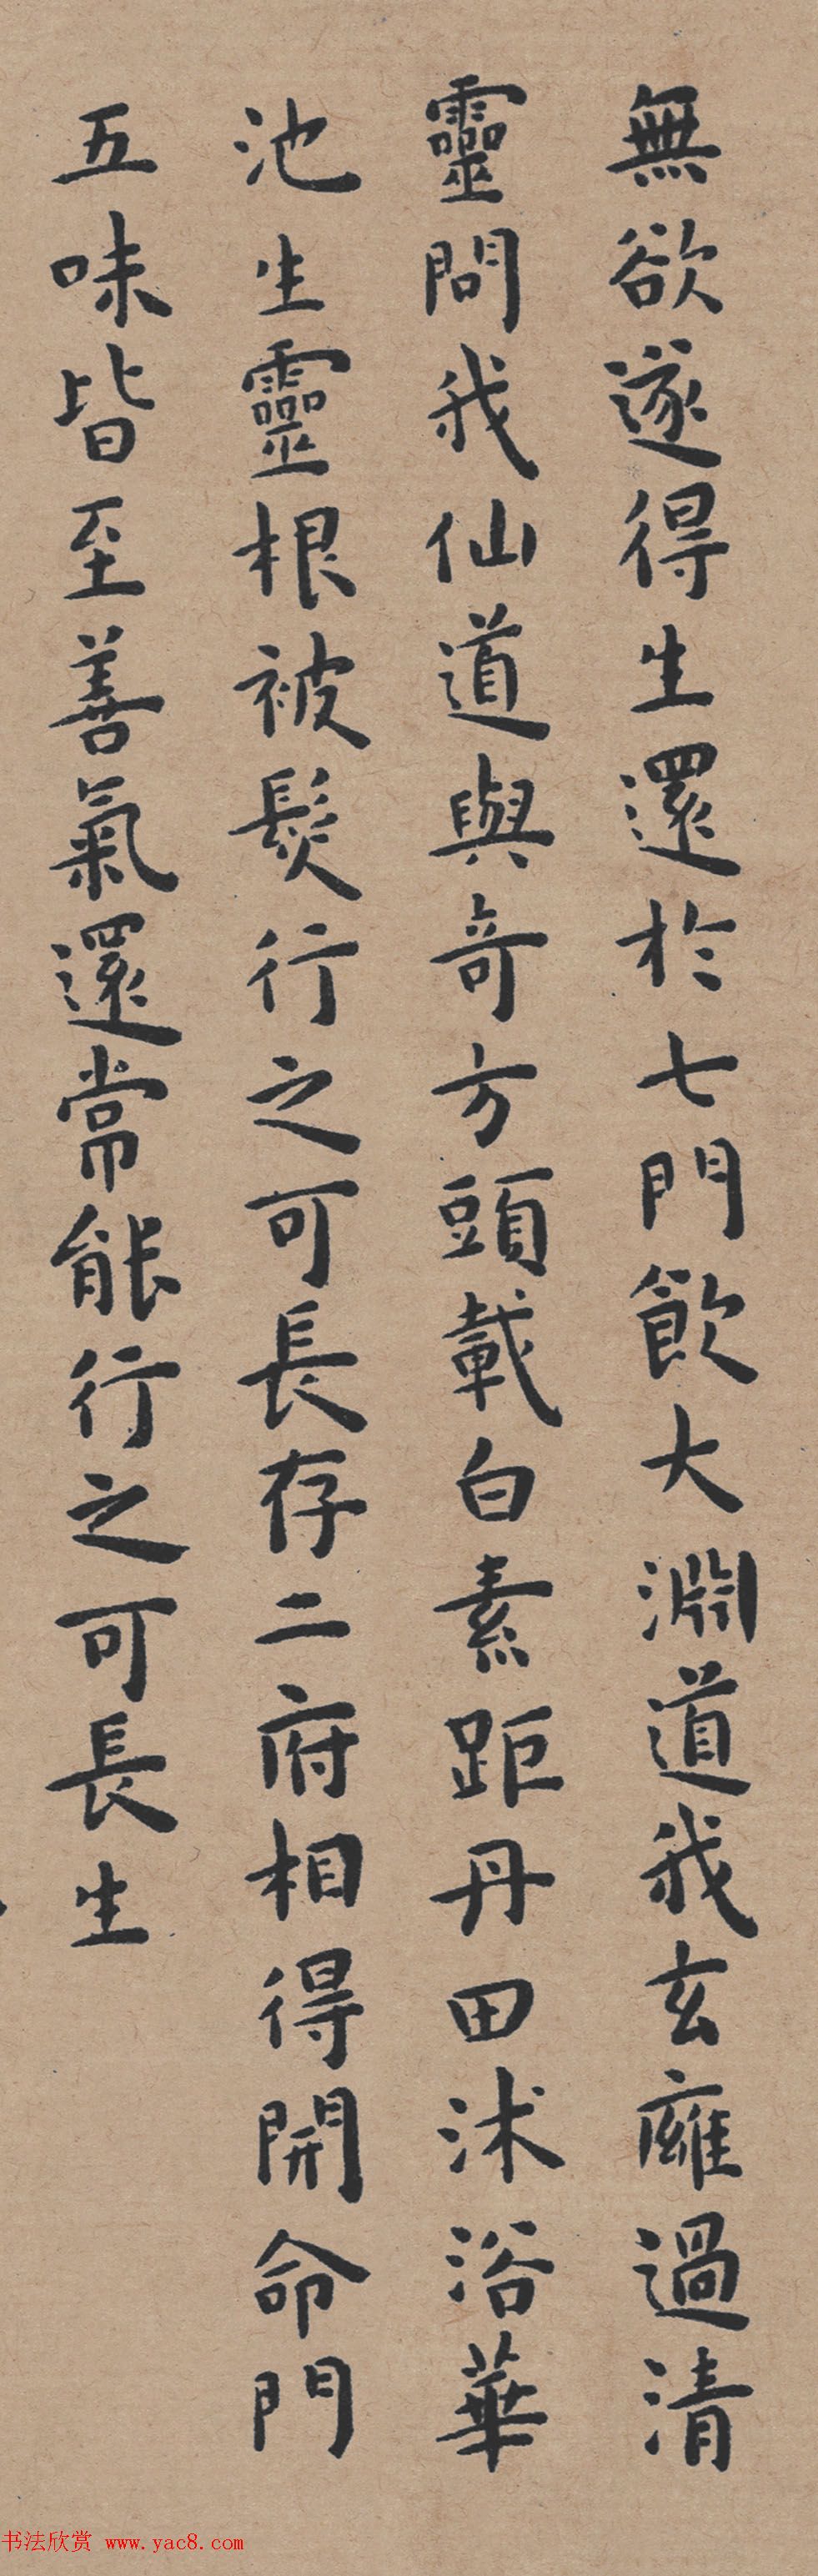 無欲遂得生還於七門飲大淵道我玄廱過清
靈問我仙道與奇方頭載白素距丹田沐浴華
池生靈根被髮行之可長存二府相得開命門
五味皆至善氣還常能行之可長生
书法欣赏 www.yac8.com